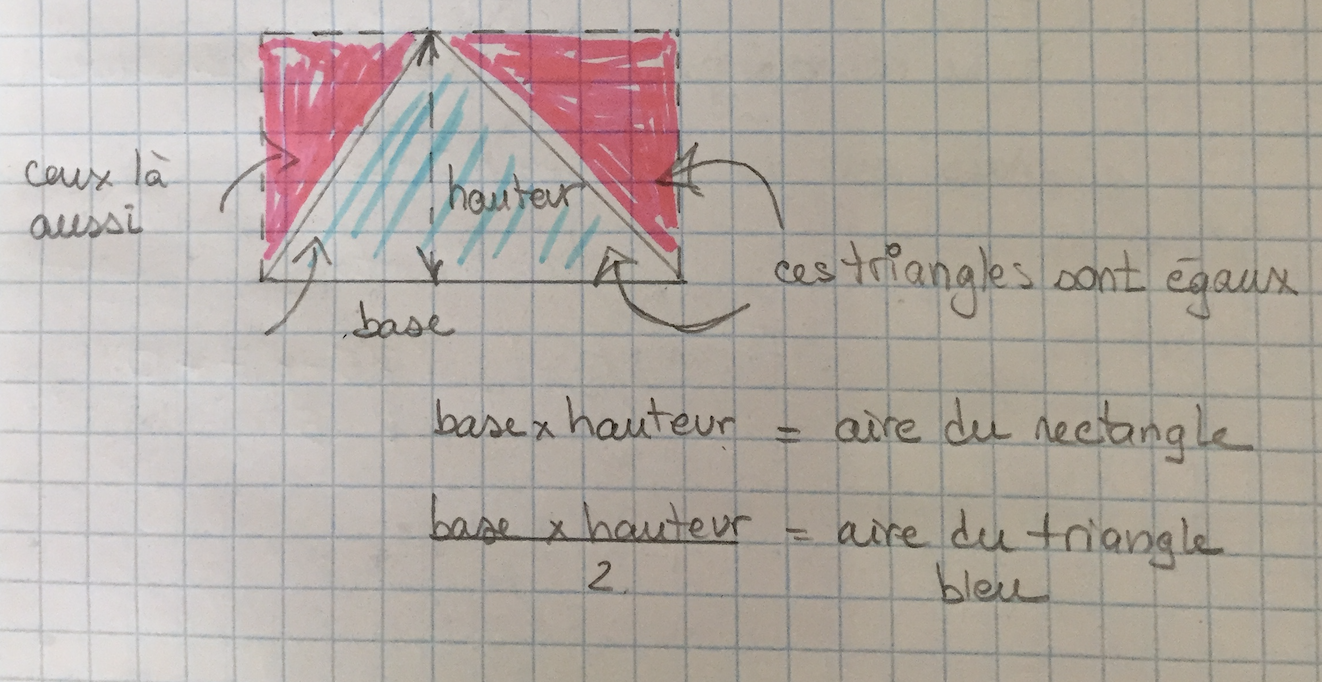 ceux là
aussi
hauteur
base
ces triangles sont égaux
base x hauteur = aire du rectangle
base x hauteur = aire du triangle
2
bleu